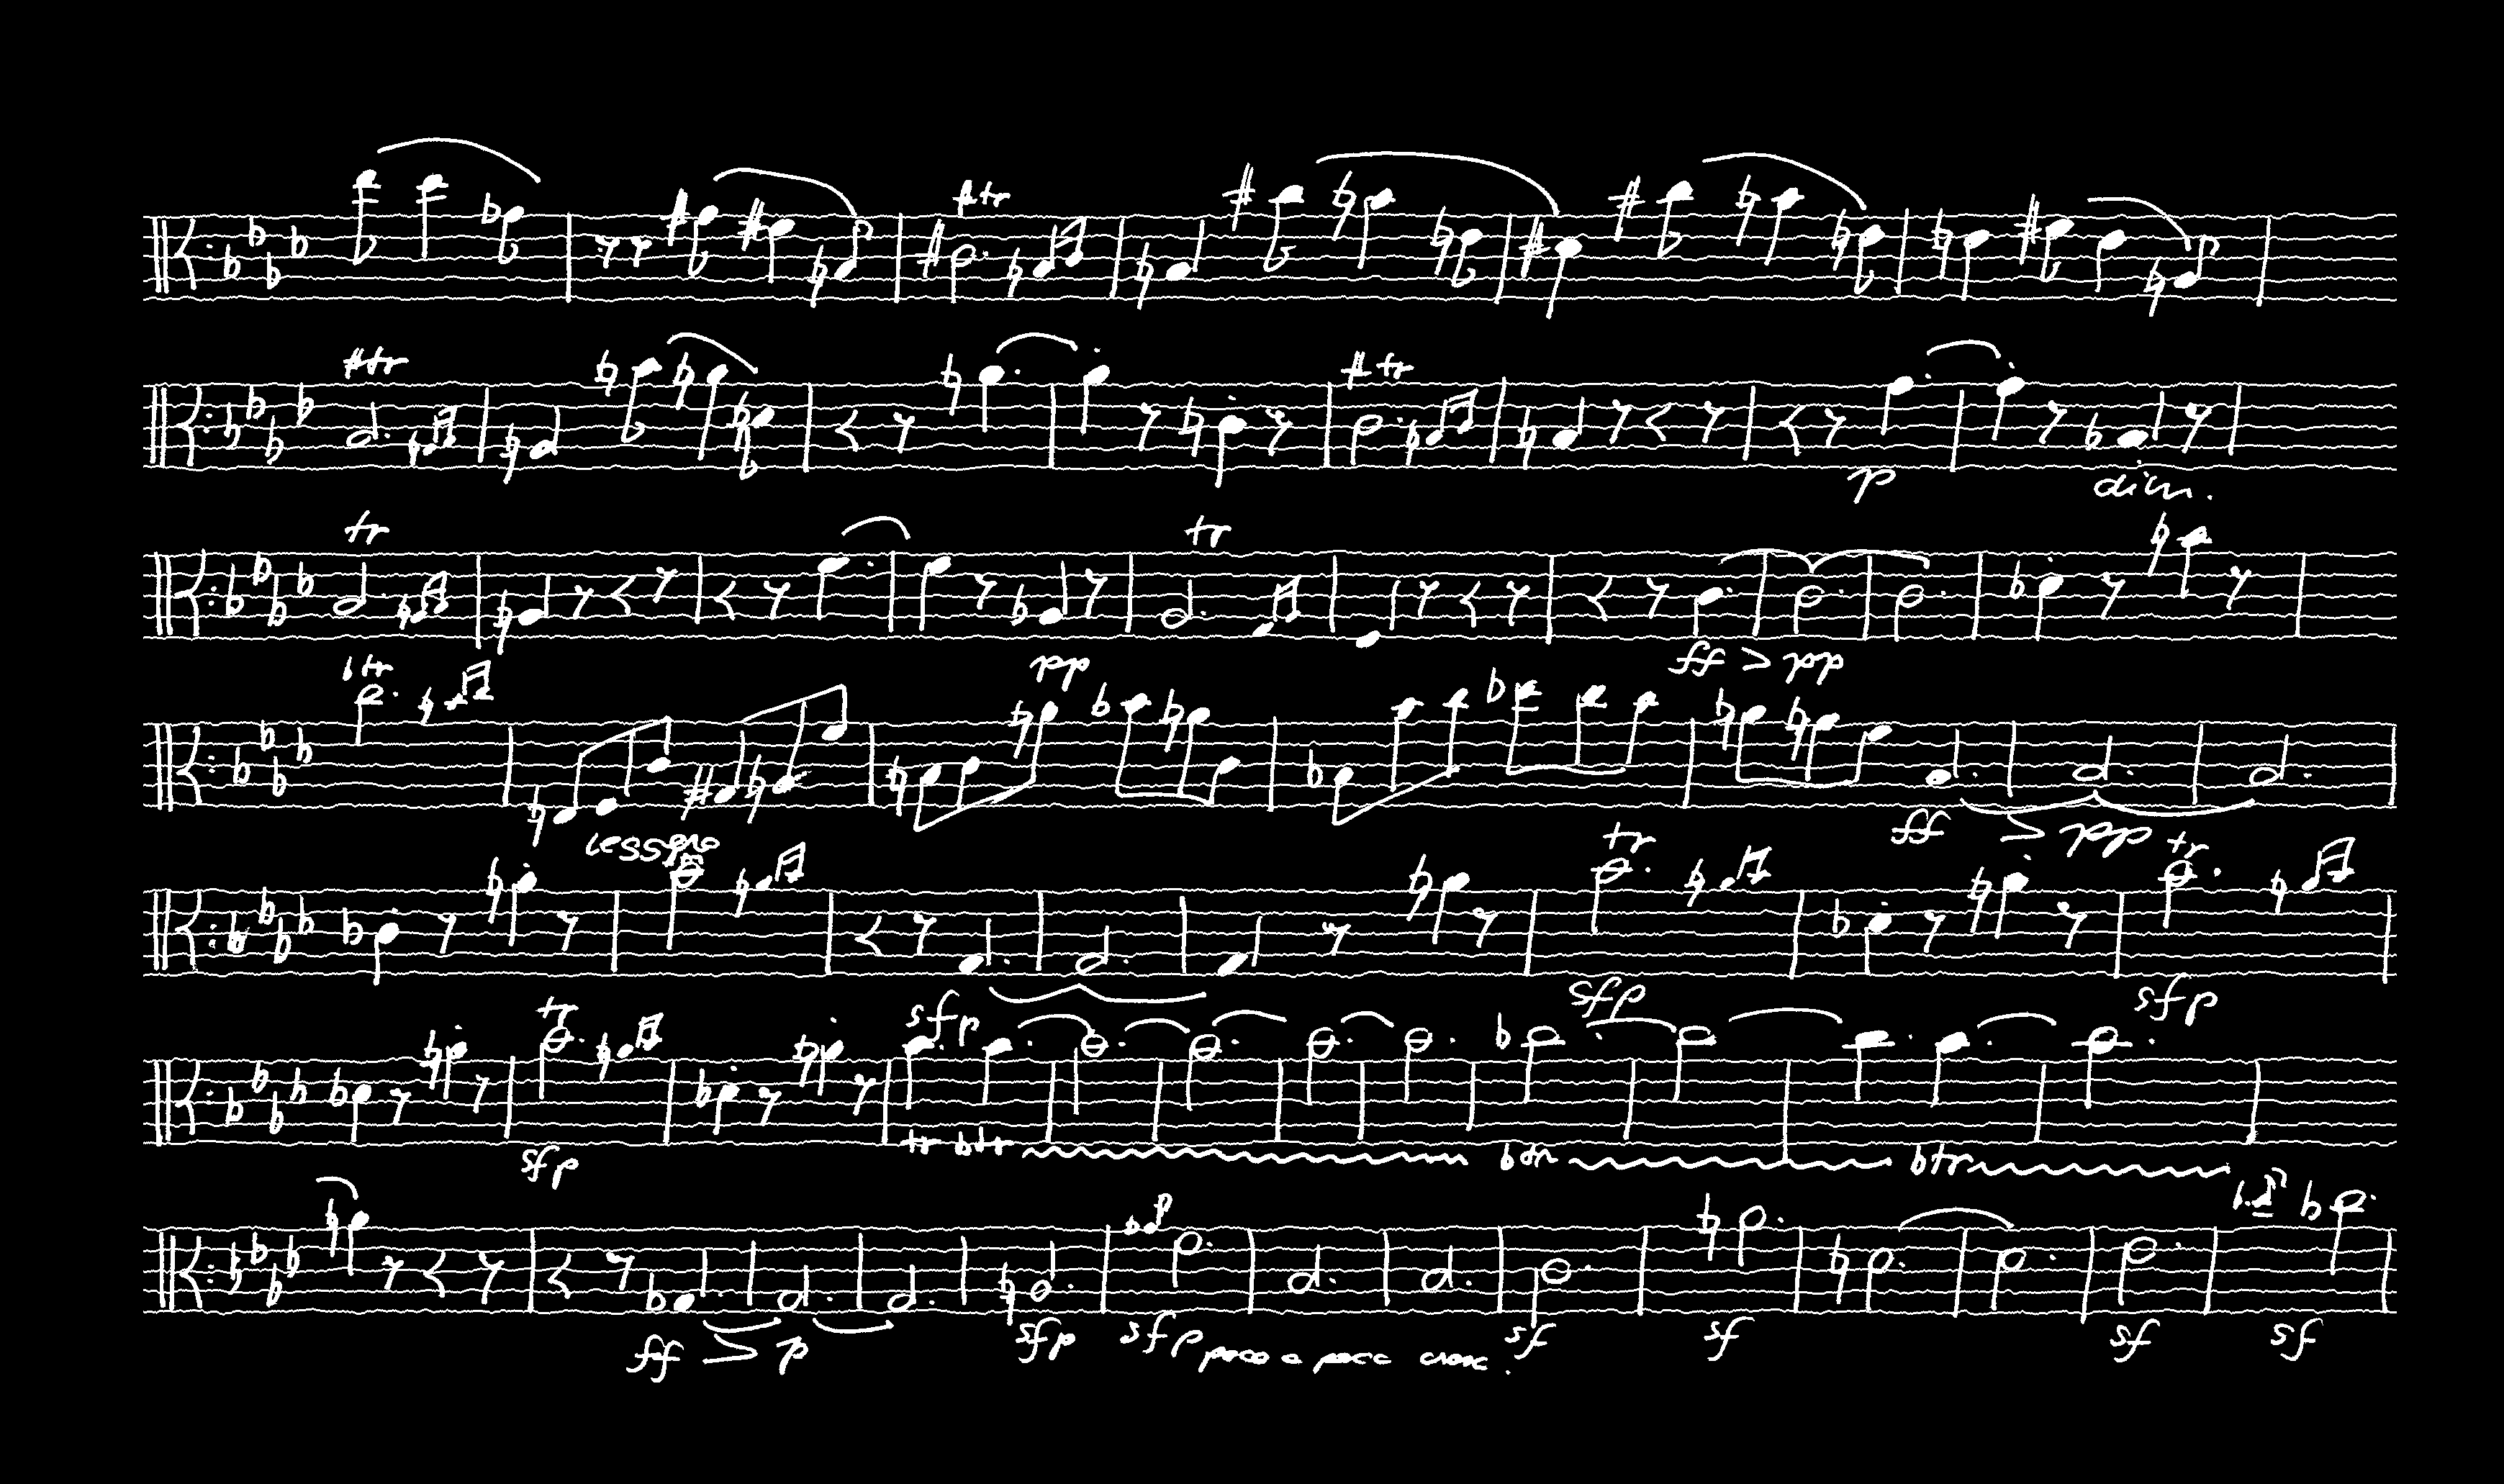 tr
tr tr
p dim.
tr tr
pp ff > pp
tr
leggero ff > pp
tr tr tr
sfp sfp sfp
tr
sfp tr tr tr tr
ff > p sfp sfp poco a poco cresc. sf sf sf sf